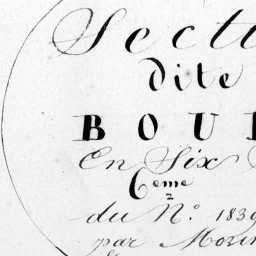 Secti
dite
BOU
En Six
6eme
du N.o 1839
par Morin